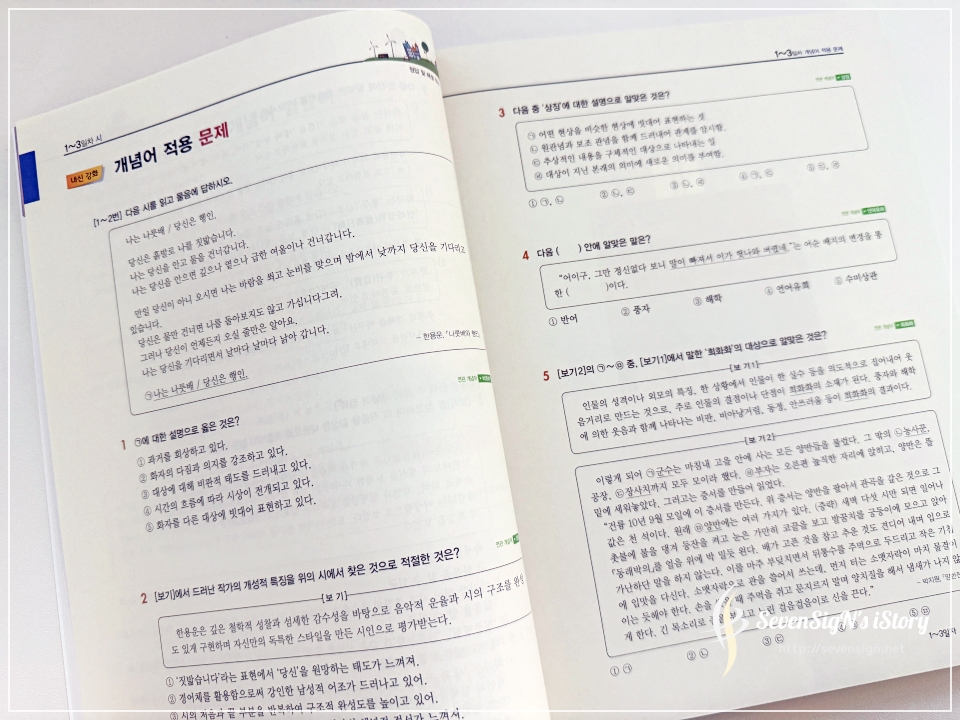 1~3일차 시
내신 강화
개념어 적용 문제
[1~2번] 다음 시를 읽고 물음에 답하시오.
나는 나룻배 / 당신은 행인.
당신은 흙발로 나를 짓밟습니다.
나는 당신을 안고 물을 건너갑니다.
나는 당신을 안으면 깊으나 옅으나 급한 여울이나 건너갑니다.
만일 당신이 아니 오시면 나는 바람을 쐬고 눈비를 맞으며 밤에서 낮까지 당신을 기다리고
있습니다.
당신은 물만 건너면 나를 돌아보지도 않고 가십니다그려.
그러나 당신이 언제든지 오실 줄만은 알아요.
나는 당신을 기다리면서 날마다 날마다 낡아 갑니다.
㉠나는 나룻배 / 당신은 행인.
- 한용운, 「나룻배와 행인
1 ㉠에 대한 설명으로 옳은 것은?
① 과거를 회상하고 있다.
② 화자의 다짐과 의지를 강조하고 있다.
③ 대상에 대해 비판적 태도를 드러내고 있다.
④ 시간의 흐름에 따라 시상이 전개되고 있다.
⑤ 화자를 다른 대상에 빗대어 표현하고 있다.
2 [보기]에서 드러난 작가의 개성적 특징을 위의 시에서 찾은 것으로 적절한 것은?
[보기]
한용운은 깊은 철학적 성찰과 섬세한 감수성을 바탕으로 음악적 운율과 시의 구조를 완성
도 있게 구현하며 자신만의 독특한 스타일을 만든 시인으로 평가받는다.
① '짓밟습니다'라는 표현에서 '당신'을 원망하는 태도가 느껴져.
② 경어체를 활용함으로써 강인한 남성적 어조가 드러나고 있어.
③ 시의 처음과 끝 부분을 반복하여 구조적 완성도를 높이고 있어.
1~3일차 개념어 적용 문제
3 다음 중 '상징'에 대한 설명으로 알맞은 것은?
㉠ 어떤 현상을 비슷한 현상에 빗대어 표현하는 것
㉡ 원관념과 보조 관념을 함께 드러내어 관계를 암시함.
㉢ 추상적인 내용을 구체적인 대상으로 나타내는 일
㉣ 대상이 지닌 본래의 의미에 새로운 의미를 부여함.
① ㉠, ㉡ ② ㉡, ㉢ ③ ㉡, ㉣ ④ ㉠, ㉢ ⑤ ㉢, ㉣
4 다음 ( ) 안에 알맞은 말은?
"어이구, 그만 정신없다 보니 말이 빠져서 이가 헛나와 버렸네."는 어순 배치의 변경을 통
한 ( )이다.
① 반어 ② 풍자 ③ 해학 ④ 언어유희 ⑤ 수미상관
5 [보기2]의 ㉠~㉤ 중, [보기1]에서 말한 '희화화'의 대상으로 알맞은 것은?
[보기1]
인물의 성격이나 외모의 특징, 한 상황에서 인물이 한 실수 등을 의도적으로 집어내어 웃
음거리로 만드는 것으로, 주로 인물의 결점이나 단점이 희화화의 소재가 된다. 풍자와 해학
에 의한 웃음과 함께 나타나는 비판, 비아냥거림, 동정, 안쓰러움 등이 희화화의 결과이다.
[보기2]
이렇게 되어 ㉠군수는 마침내 고을 안에 사는 모든 양반들을 불렀다. 그 밖의 ㉡농사꾼,
공장, ㉢장사치까지 모두 모이라 했다. ㉣부자는 오른편 높직한 자리에 앉히고, 양반은 뜰
밑에 세워놓았다. 그러고는 증서를 만들어 읽었다.
"건륭 10년 9월 모일에 이 증서를 만든다. 위 증서는 양반을 팔아서 관곡을 갚은 것으로 그
값은 천 석이다. 원래 ㉤양반에는 여러 가지가 있다. (중략) 새벽 다섯 시만 되면 일어나
촛불에 불을 댕겨 등잔을 켜고 눈은 가만히 코끝을 보고 발꿈치를 궁둥이에 모으고 앉아
『동래박의』를 얼음 위에 박 밀듯 왼다. 배가 고픈 것을 참고 추운 것도 견디어 내며 입으로
가난하단 말을 하지 않는다. 이를 마주 부딪치면서 뒤통수를 주먹으로 두드리고 작은 기침
에 입맛을 다신다. 소맷자락으로 관을 쓸어서 쓰는데, 먼지 터는 소맷자락이 마치 물결이
이는 듯해야 한다. 손을 주먹을 쥐고 문지르지 말며 양치질을 해서 냄새가 나지 않
게 한다. 긴 목소리로 느린 걸음걸이로 신을 끈다."
- 박지원, 「양반전
① ㉠ ② ㉡ ③ ㉢ ⑤ ㉤
1~3일차
SevenSigN's iStory
http://sevensign.net